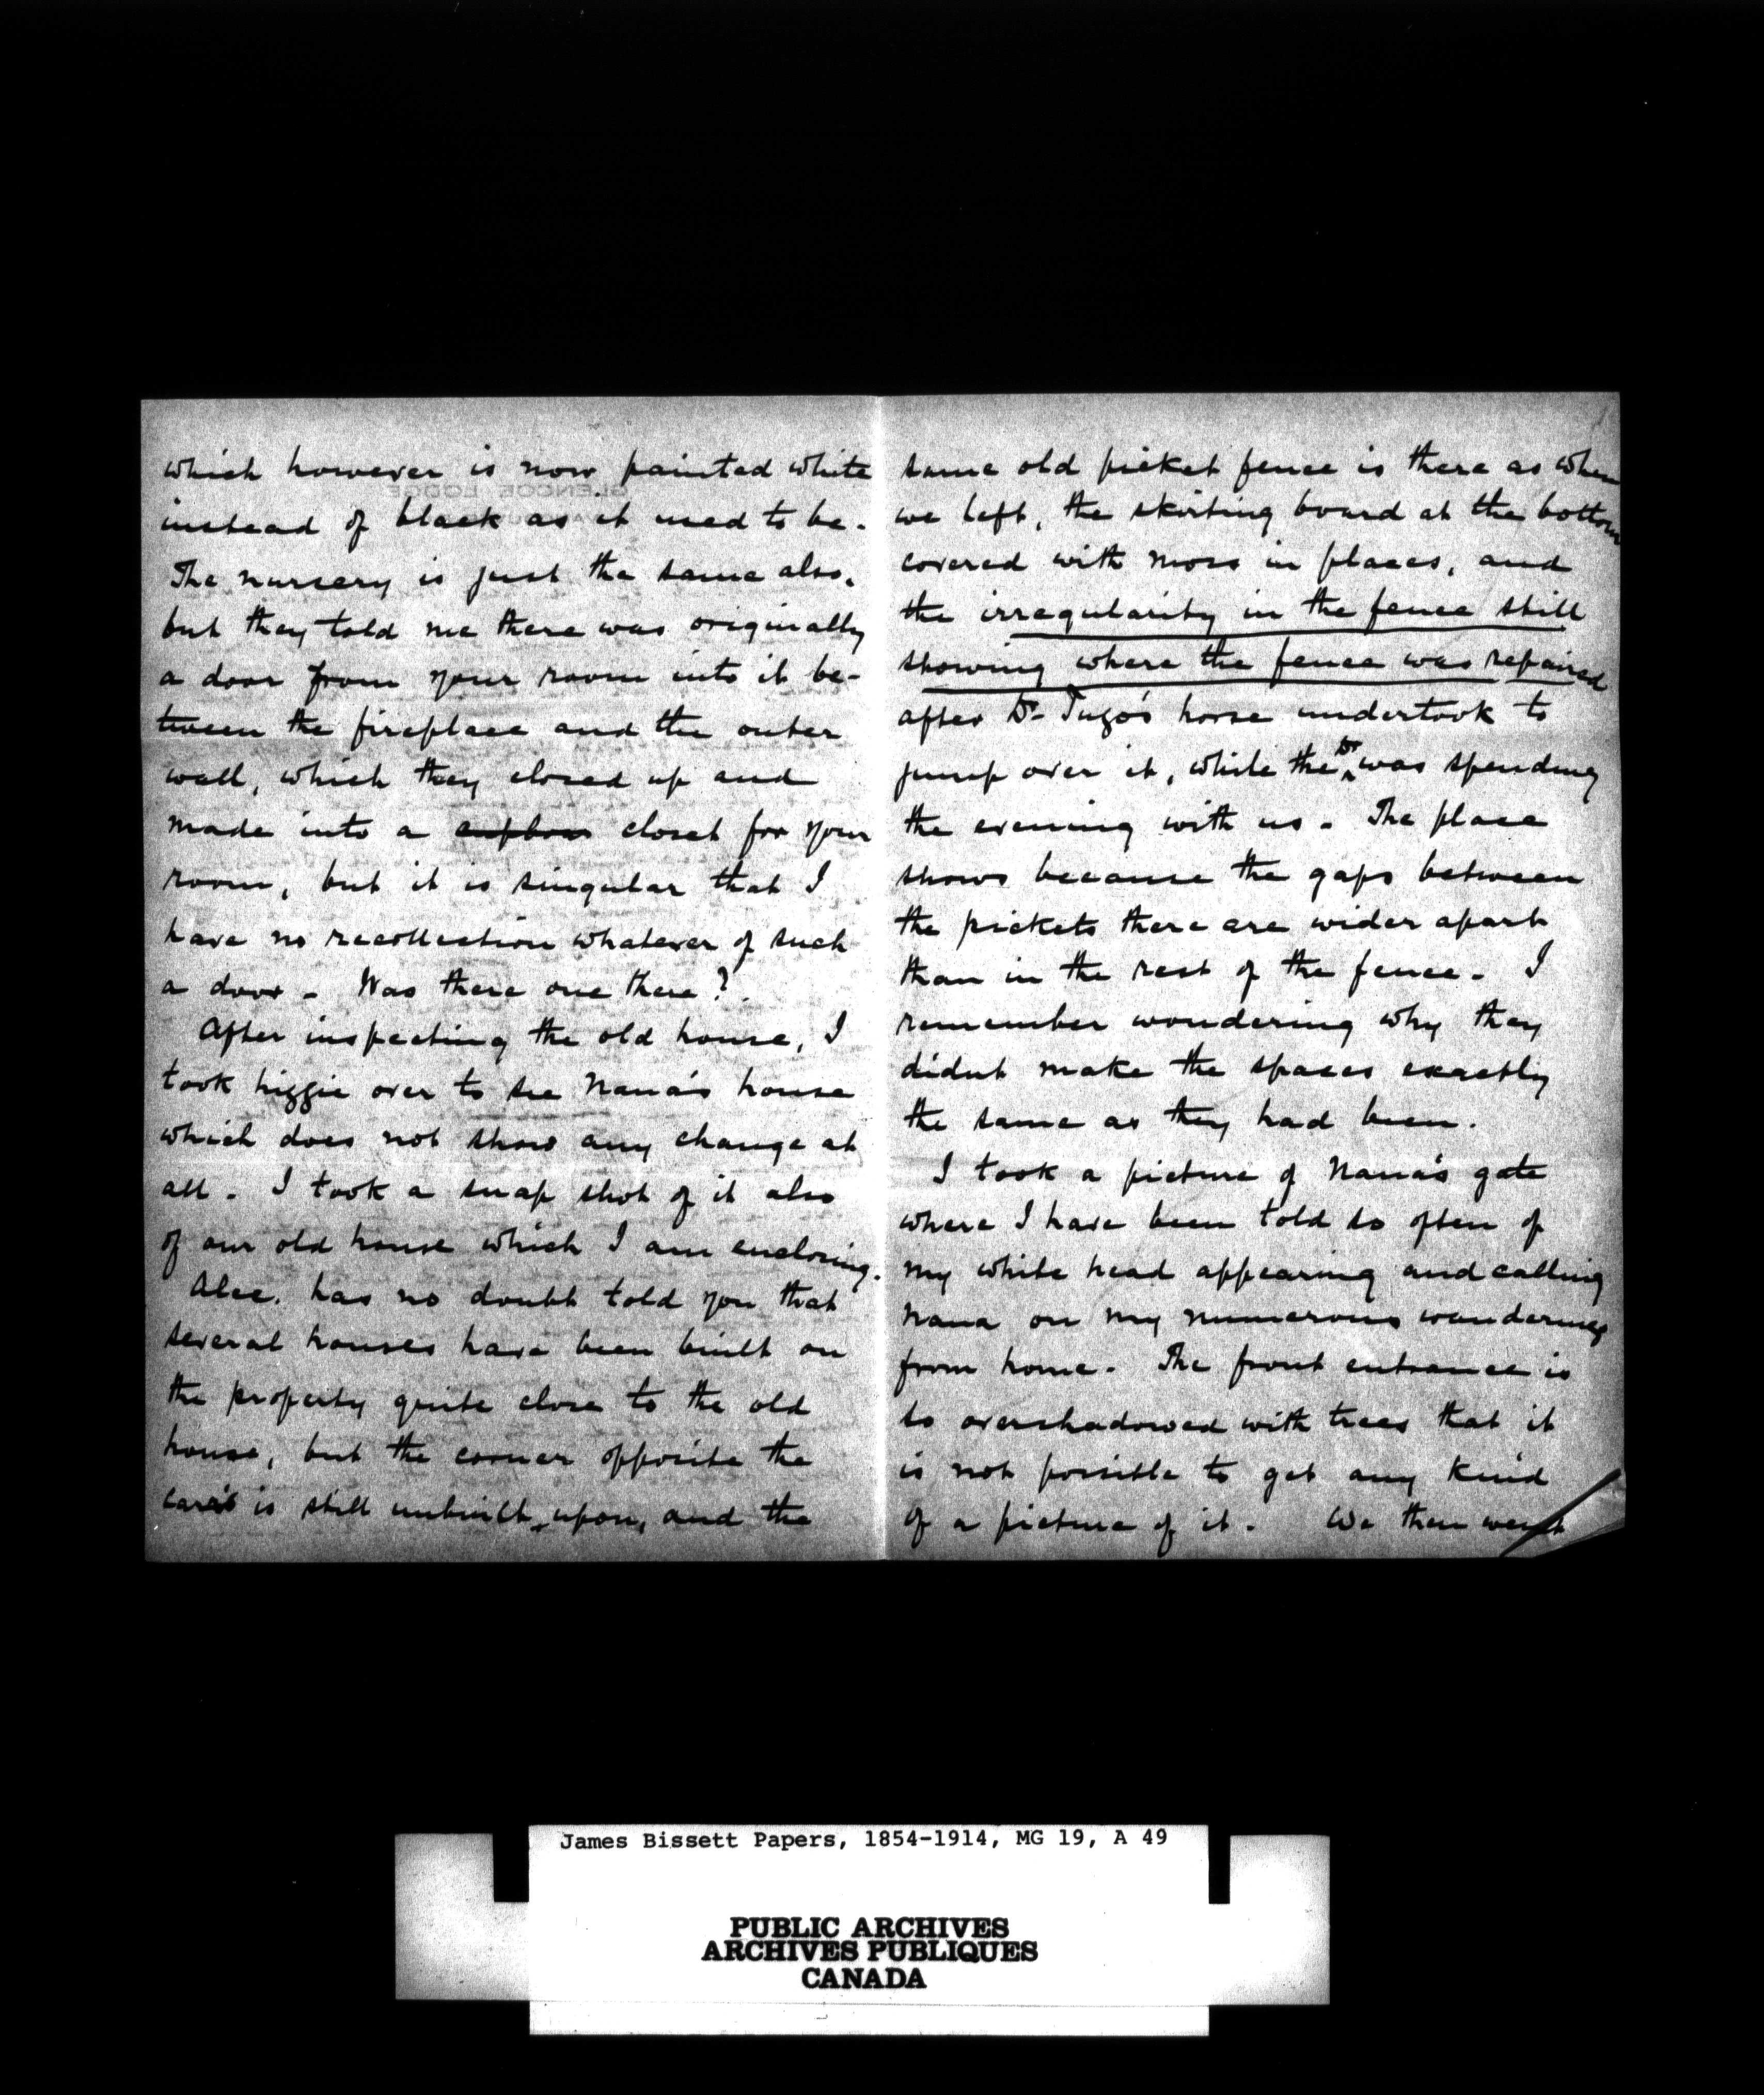 which however is now painted white
instead of black as it used to be.
The nursery is just the same also,
but they told me there was originally
a door from your room into it be-
tween the fireplace and the outer
wall, which they closed up and
made into a closet for your
room, but it is singular that I
have no recollection whatever of such
a door - Was there one there?
After inspecting the old house, I
took over to see Nana's house
which does not show any change at
all. I took a snap shot of it also
of our old house which I am enclosing.
Alec. has no doubt told you that
several houses have been built on
the property quite close to the old
house, but the corner opposite the
is still unbuilt upon, and the
same old picket fence is there as when
we left, the skirting board at the bottom
covered with moss in places, and
the irregularity in the fence still
showing where the fence was repaired
after Dr. Tuzo's horse undertook to
jump over it, while the Dr was spending
the evening with us - The place
shows because the gaps between
the pickets there are wider apart
than in the rest of the fence - I
remember wondering why they
didnt make the spaces exactly
the same as they had been.
I took a picture of Nana's gate
where I have been told so often of
my white head appearing and calling
Nana on my numerous wanderings
from home - The front entrance is
so overshadowed with trees that it
is not possible to get any kind
of a picture of it - We then went
GLENCOE LODGE
James Bissett Papers, 1854-1914, MG 19, A 49
PUBLIC ARCHIVES
ARCHIVES PUBLIQUES
CANADA